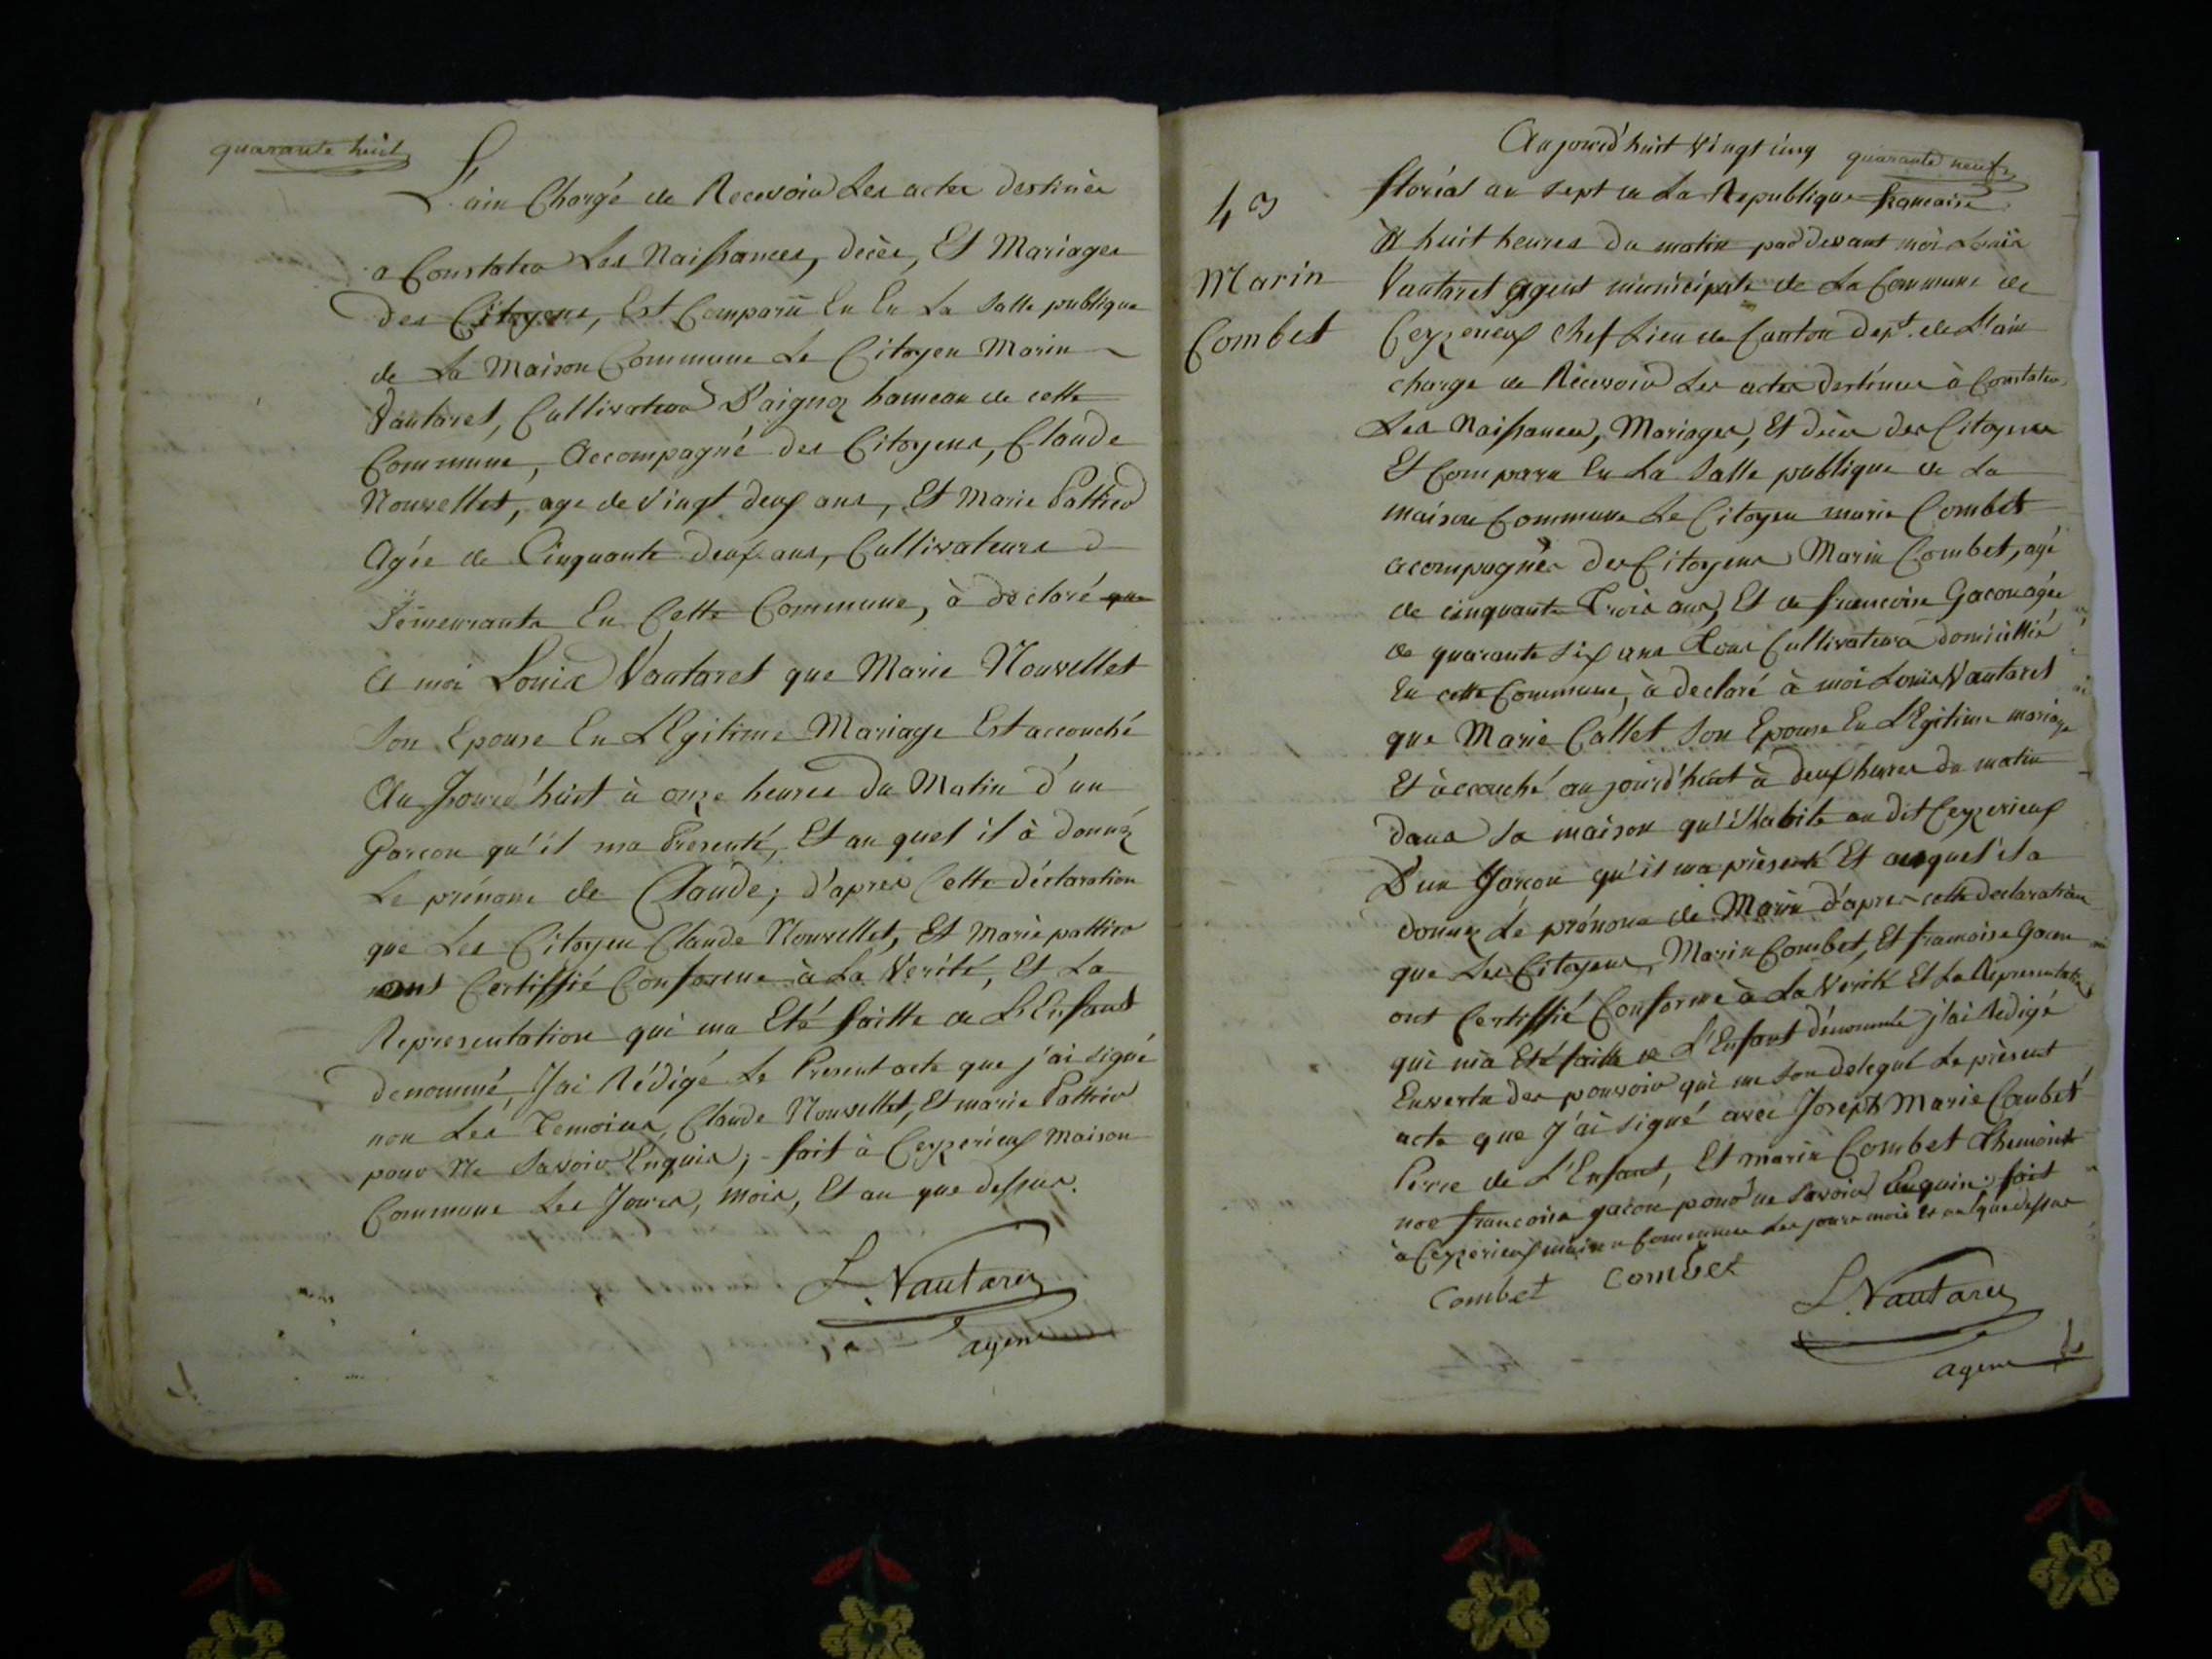 quarante huit
L'ain Chargé de Recevoir Les actes destinés
a Constater Les Naissances, décès, Et Mariages
des Citoyens, Est Comparü En En La Salle publique
de La Maison Commune Le Citoyen Marin
Vautaret, Cultivateur D'aignoz hameau de cette
Commune, Accompagné des Citoyens, Claude
Nouvellet, age de Vingt deux ans, Et Marie Pattier
Agée de Cinquante deux ans, Cultivateurs d
Demeurants En Cette Commune, à déclaré que
A moi Louis Vautaret que Marie Nouvellet
Son Epouse En LEgitime Mariage Est accouché
Au Jourd'huit à onze heures Du Matin d'un
Garcon qu'il ma Presenté, Et au quel il à donnéz
Le prénom de Claude; d'après Cette déclaration
que Les Citoyen Claude Nouvellet, Et Marie pattier
ont Certiffié Conforme à La Verité, Et La
Representation qui ma Eté faitte de L'Enfant
denommé, J'ai Rédigé Le Present acte que j'ai signé
non Les Temoins, Claude Nouvellet, Et marie Pattier
pour Ne Savoir Enquis; fait à Ceyzerieux Maison
Commune Les Jours, mois, Et an que dessus.
L. Vautaret
agent
quarante neuf
43
Marin
Combet
Aujourd'huit Vingt cinq
floréal an sept de La Republique francaise
à huit heures du matin par devant moi Louis
Vautaret agent municipale de La Commune de
Ceyzerieux chef Lieu de Canton dept. de L'ain
chargé de Récevoir Les actes destinés à Constater
Les Naissances, Mariages, Et décès des Citoyens
Et Comparu En La Salle publique de La
maison Commune Le Citoyen marie Combet
acompagnés des Citoyens Marin Combet, agé
de cinquante Trois ans, Et de francoise Gacon agée
de quarante Six ans Tous Cultivateurs domicilliés
En cette Commune, à declaré à moi Louis Vautaret
que Marie Callet Son Epouse En LEgitime mariage
Et àccouché au jourd'huit à deux heures du matin
dans Sa maison qu'il habite au dit Ceyzerieux
D'un Garcon qu'il ma présenté Et auquel il a
donnez Le prénom de Marin d'apres cette declaration
que Les Citoyens, Marin Combet, Et francoise Gacon
ont Certiffié Conforme à La Verité Et La Representation
qui m'a Eté faitte de L'Enfant dénommé j'ai Redigé
En vertu des pouvoir qui me Son delegué Le présent
acte que j'ai signé avec Joseph Marie Combet
Perre de L'Enfant, Et marin Combet Themoint
non francoise gacon pour ne Savoir Enquis: fait
à Ceyzerieux maison Commune Les jours mois Et an que dessus
Combet Combet
L. Vautaret
agent